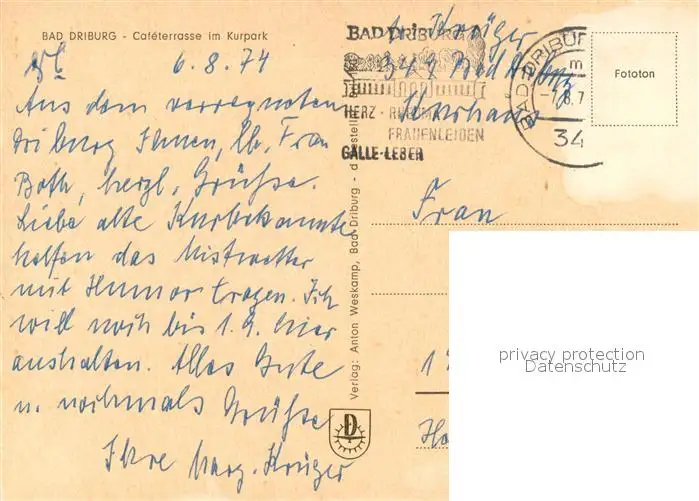 BAD DRIBURG - Caféterrasse im Kurpark
6.8.74
Aus dem verregneten
Driburg Ihnen, lb. Frau
Both, herzl. Grüße.
Liebe alte Kurbekannte
helfen das Mistwetter
mit Humor tragen. Ich
will noch bis 1.9. hier
aushalten. Alles Gute
u. nochmals Grüße
Ihre Marg. Krüger
Verlag: Anton Weskamp, Bad Driburg
D
Krüger
349 Bad Driburg
Kurhaus
BAD DRIBURG
HERZ - RHEUMA
FRAUENLEIDEN
GALLE-LEBER
BAD DRIBURG
34
Fototon
Frau
privacy protection
Datenschutz